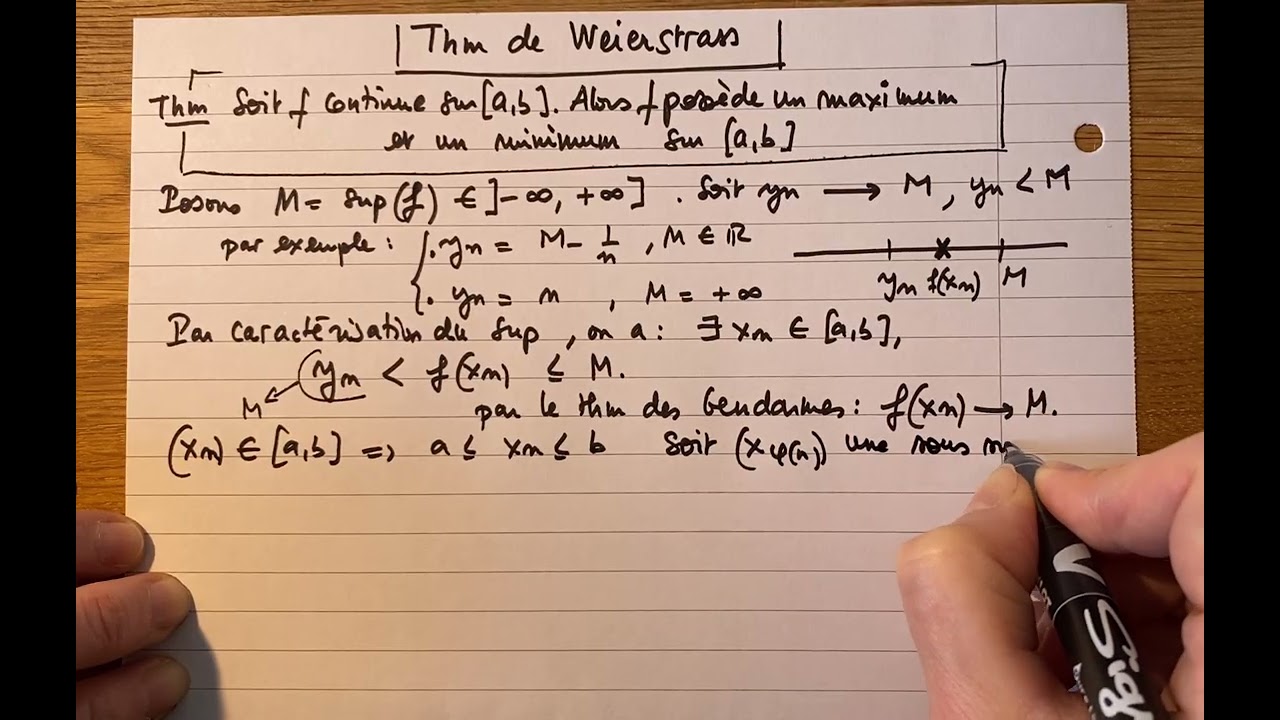 Thm de Weierstrass
Thm Soit f continue sur [a,b]. Alors f possède un maximum
et un minimum sur [a,b]
Posons M = sup(f) ∈ ]-∞, +∞] . Soit yn → M, yn < M
par exemple : { . yn = M - 1/n , M ∈ ℝ
. yn = n , M = +∞
yn f(xn) M
Par caractérisation du sup, on a : ∃ xn ∈ [a,b],
yn < f(xn) ≤ M.
M
par le thm des Gendarmes : f(xn) → M.
(xn) ∈ [a,b] => a ≤ xn ≤ b Soit (xφ(n)) une sous